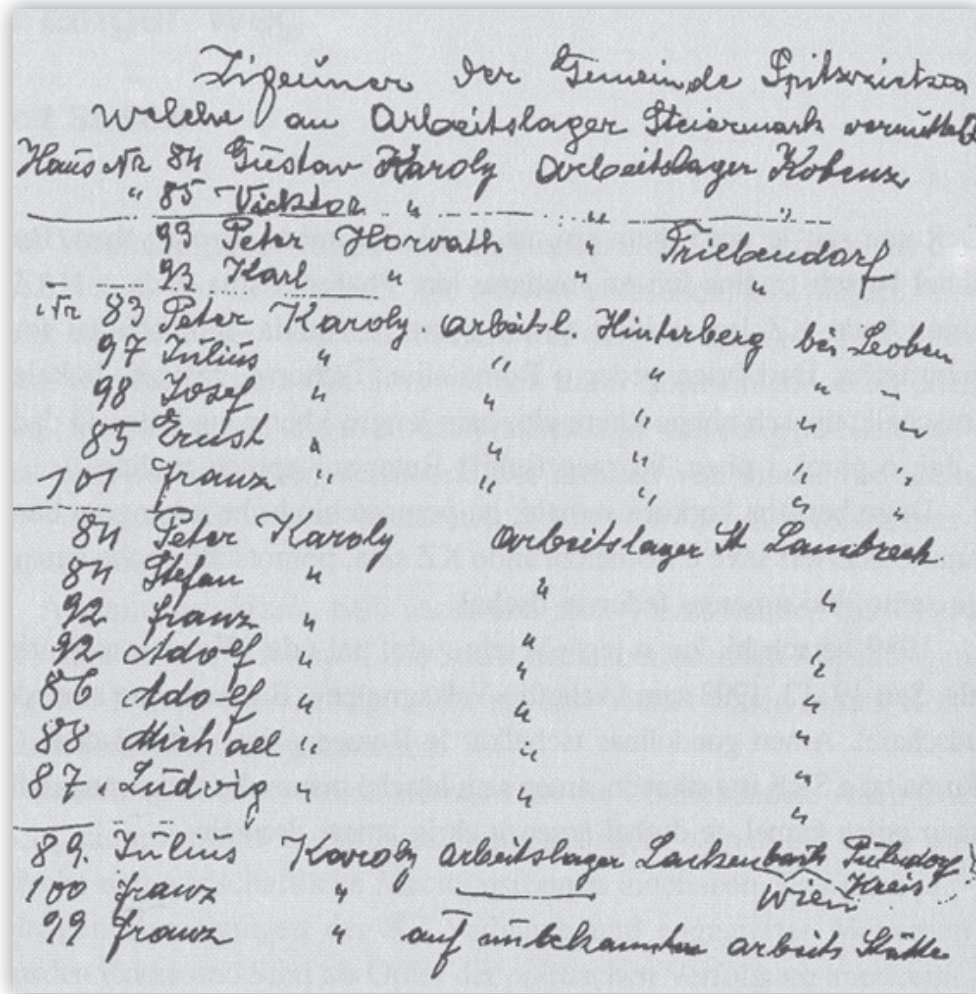 Zigeuner der Gemeinde Spitzzicken
Welche an Arbeitslager Steiermark vermittelt
Haus Nr 84 Gustav Karoly Arbeitslager Kobenz
" 85 Vicktor " " "
99 Peter Horvath Triebendorf
93 Karl " " "
Nr 83 Peter Karoly Arbeitsl. Hinterberg bei Leoben
97 Julius " " " " "
98 Josef " " " " "
85 Ernst " " " " "
101 Franz " " " " "
84 Peter Karoly Arbeitslager St Lambrech
84 Stefan " " "
92 Franz " " "
92 Adolf " " "
86 Adolf " " "
88 Michael " " "
87 Ludwig " " "
89. Julius Karoly Arbeitslager Lackenbach
100 Franz " Wien Kreis
99 Franz " auf unbekannten arbeits Stätte